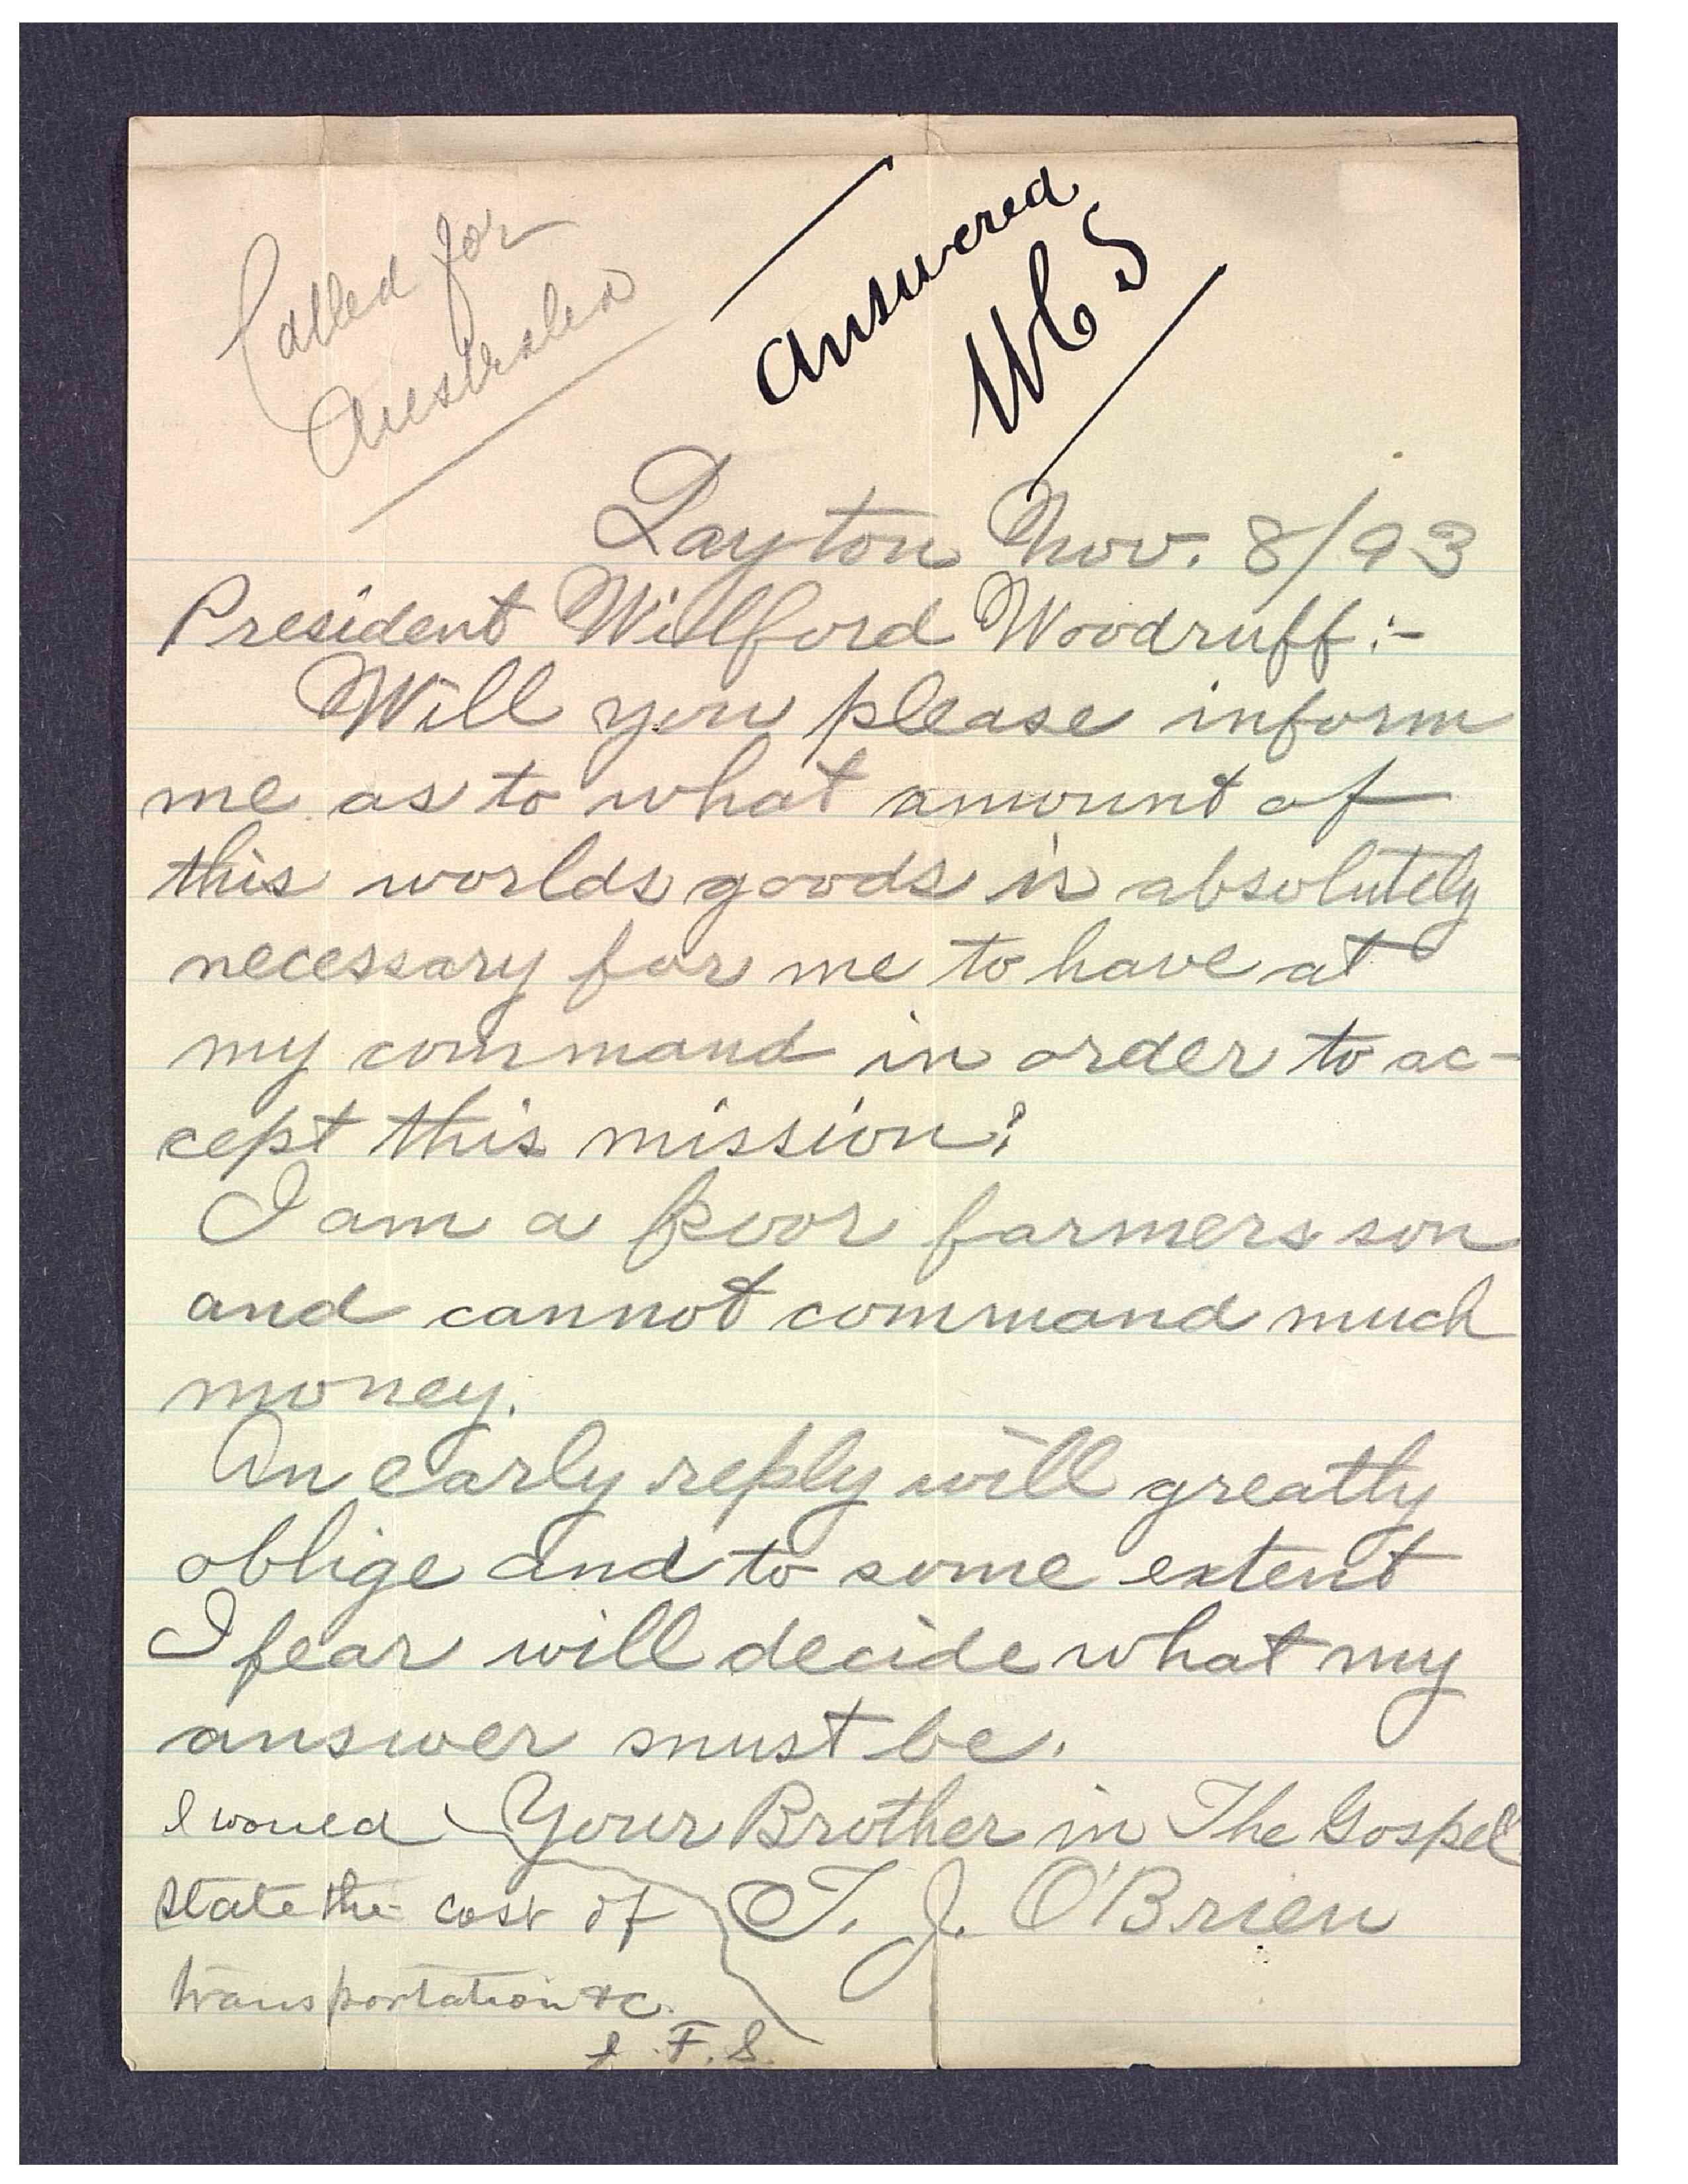 Called for
Australia
Answered
Layton Nov. 8/93
President Willford Woodruff:-
Will you please inform
me as to what amount of
this worlds goods is absolutely
necessary for me to have at
my command in order to ac-
cept this mission?
I am a poor farmers son
and cannot command much
money.
An early reply will greatly
oblige and to some extent
I fear will decide what my
answer must be.
Your Brother in The Gospel
T. J. O'Brien
I would
state the cost of
transportation &c.
J. F. S.